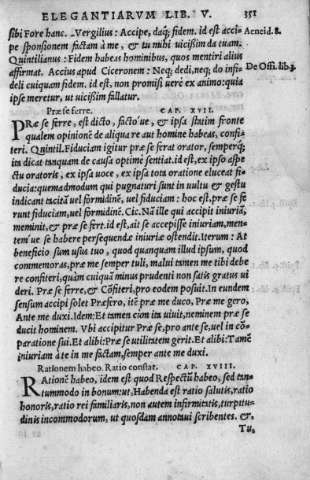 ELEGANTIARVM LIB. V. 351
sibi Fore hanc. Vergilius: Accipe, daq; fidem. id est acci- Aeneid. 8.
pe sponsionem factam à me, & tu mihi uicissim da tuam.
Quintilianus: Fidem habeas hominibus, quos mentiri alius
affirmat. Accius apud Ciceronem: Neq; dedi, neq; do infi- De Offi. lib. 3.
deli cuiquam fidem. id est, non promisi uere ex animo: quia
ipse meretur, ut uicissim fallatur.
Præ se ferre. CAP. XVII.
PRæ se ferre, est dicto, facto'ue, & ipsa statim fronte
qualem opinionē de aliqua re aut homine habeas, confi-
teri. Quintil. Fiduciam igitur præ se ferat orator, semperq;
ita dicat tanquam de causa optime sentiat. id est, ex ipso aspe-
ctu oratoris, ex ipsa uoce, ex ipsa tota oratione eluceat fi-
ducia: quemadmodum qui pugnaturi sunt in uultu & gestu
indicant tacitā uel formidinē, uel fiduciam: hoc est, præ se fe
runt fiduciam, uel formidinē. Cic. Nā ille qui accipit iniuriā,
meminit, & præ se fert. id est, ait se accepisse iniuriam, men-
tem'ue se habere persequendæ iniuriæ ostendit. Iterum: At
beneficio sum usus tuo, quod quanquam illud ipsum, quod
commemoras, præ me semper tuli, malui tamen me tibi debe
re confiteri, quàm cuiquā minus prudenti non satis gratus ui
deri. Præ se ferre, & Cōfiteri, pro eodem posuit. In eundem
sensum accipi solet Præfero, itē præ me duco, Præ me gero,
Ante me duxi. Idem: Et tamen cùm ita uiuit, neminem præ se
ducit hominem. Vbi accipitur Præ se, pro ante se, uel in cō-
paratione sui. Et alibi: Præ se utilitatem gerit. Et alibi: Tamē
iniuriam à te in me factam, semper ante me duxi.
Rationem habeo. Ratio constat. CAP. XVIII.
RAtionē habeo, idem est quod Respectū habeo, sed tan-
tummodo in bonum: ut, Habenda est ratio salutis, ratio
honoris, ratio rei familiaris, non autem infirmitatis, turpitu-
dinis incommodorum, ut quosdam annotaui scribentes. &.
Tu.